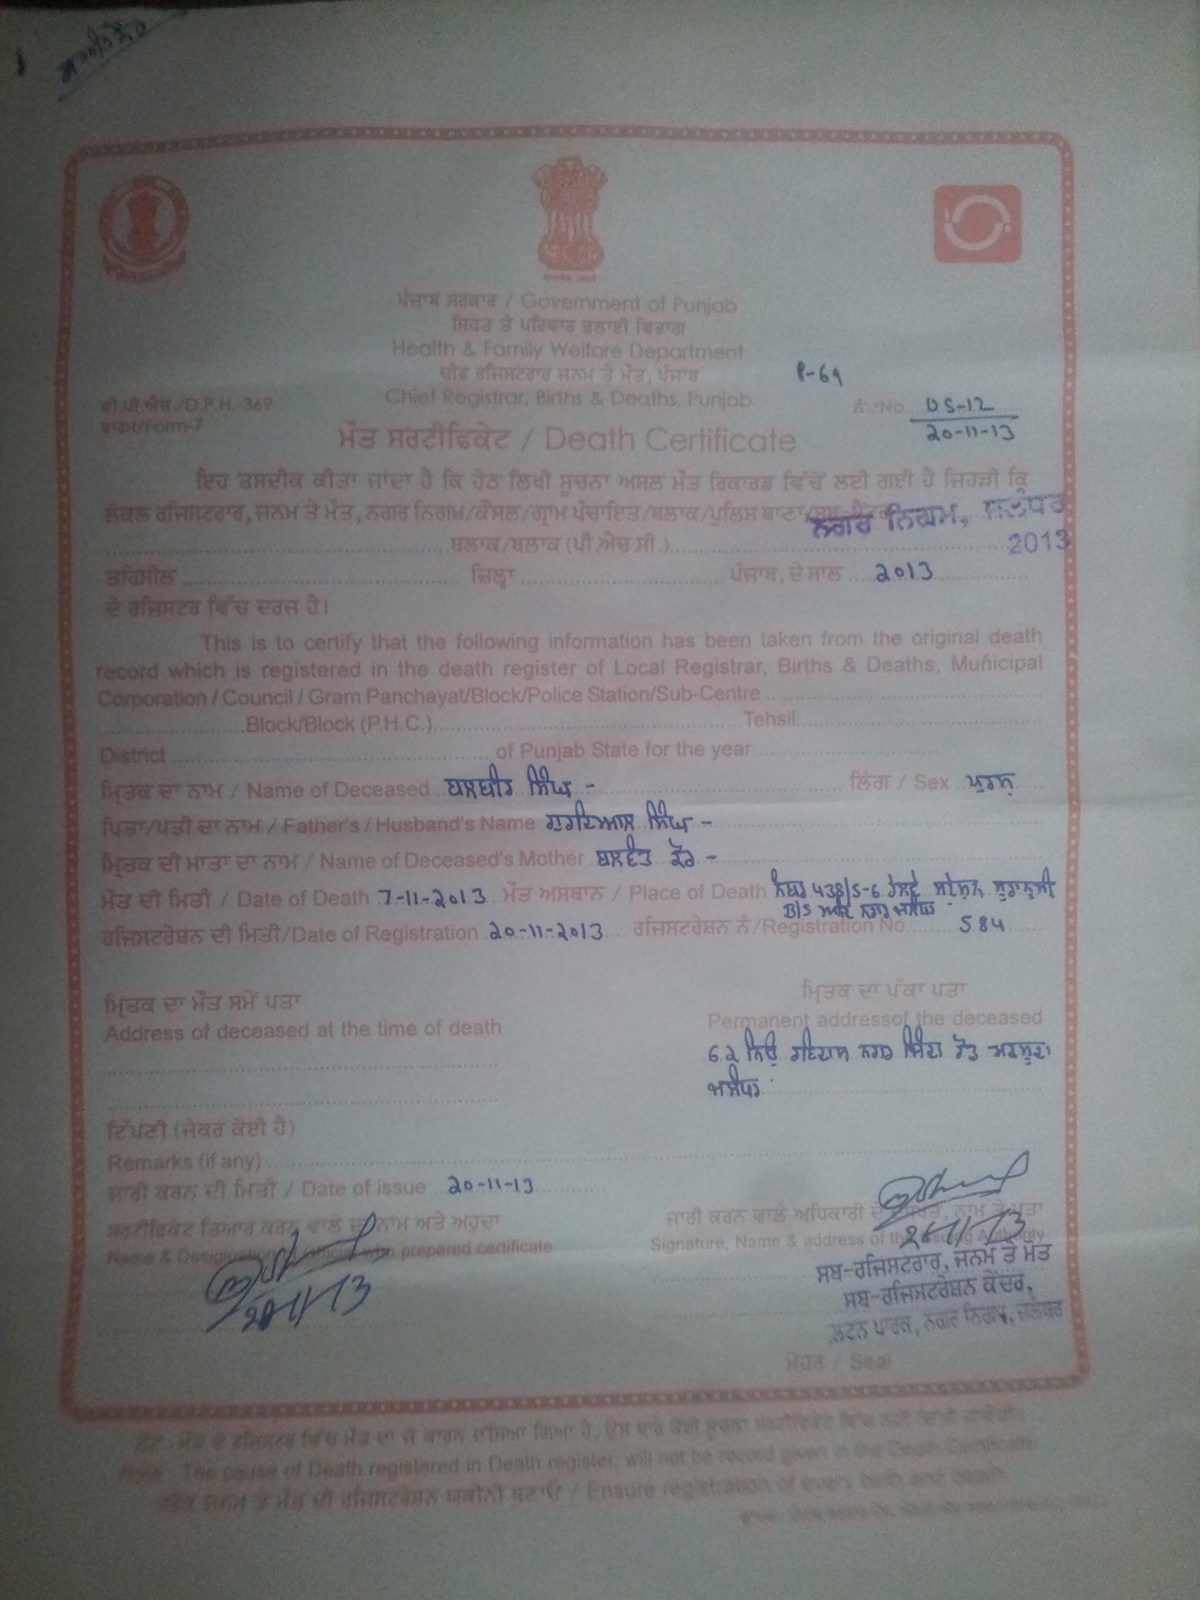 ਪੰਜਾਬ ਸਰਕਾਰ / Government of Punjab
ਸਿਹਤ ਤੇ ਪਰਿਵਾਰ ਭਲਾਈ ਵਿਭਾਗ
Health & Family Welfare Department
ਚੀਫ ਰਜਿਸਟਰਾਰ ਜਨਮ ਤੇ ਮੌਤ, ਪੰਜਾਬ
P-64
Chief Registrar, Births & Deaths, Punjab
ਡੀ.ਪੀ.ਐਚ./D.P.H.-369
ਫਾਰਮ/Form-7
ਨੰ:/No. US-12
20-11-13
ਮੌਤ ਸਰਟੀਫਿਕੇਟ / Death Certificate
ਇਹ ਤਸਦੀਕ ਕੀਤਾ ਜਾਂਦਾ ਹੈ ਕਿ ਹੇਠ ਲਿਖੀ ਸੂਚਨਾ ਅਸਲ ਮੌਤ ਰਿਕਾਰਡ ਵਿੱਚੋਂ ਲਈ ਗਈ ਹੈ ਜਿਹੜੀ ਕਿ
ਲੋਕਲ ਰਜਿਸਟਰਾਰ, ਜਨਮ ਤੇ ਮੌਤ, ਨਗਰ ਨਿਗਮ/ਕੌਂਸਲ/ਗ੍ਰਾਮ ਪੰਚਾਇਤ/ਬਲਾਕ/ਪੁਲਿਸ ਥਾਣਾ/ਸਬ-ਸੈਂਟਰ
ਨਗਰ ਨਿਗਮ, ਜਲੰਧਰ
ਬਲਾਕ/ਬਲਾਕ (ਪੀ.ਐਚ.ਸੀ.) 2013
ਤਹਿਸੀਲ ਜ਼ਿਲ੍ਹਾ ਪੰਜਾਬ, ਦੇ ਸਾਲ 2013
ਦੇ ਰਜਿਸਟਰ ਵਿੱਚ ਦਰਜ ਹੈ।
This is to certify that the following information has been taken from the original death
record which is registered in the death register of Local Registrar, Births & Deaths, Municipal
Corporation / Council / Gram Panchayat/Block/Police Station/Sub-Centre
Block/Block (P.H.C.) Tehsil
District of Punjab State for the year
ਮ੍ਰਿਤਕ ਦਾ ਨਾਮ / Name of Deceased ਬਲਬੀਰ ਸਿੰਘ - ਲਿੰਗ / Sex ਪੁਰਸ਼
ਪਿਤਾ/ਪਤੀ ਦਾ ਨਾਮ / Father's / Husband's Name ਗੁਰਦਿਆਲ ਸਿੰਘ -
ਮ੍ਰਿਤਕ ਦੀ ਮਾਤਾ ਦਾ ਨਾਮ / Name of Deceased's Mother ਬਲਵੰਤ ਕੌਰ -
ਮੌਤ ਦੀ ਮਿਤੀ / Date of Death 7-11-2013 ਮੌਤ ਅਸਥਾਨ / Place of Death 438/S-6 ਰੇਲਵੇ ਸਟੇਸ਼ਨ ਸੁਰਾਨੁਸੀ
B/S ਨਗਰ ਜਲੰਧਰ
ਰਜਿਸਟਰੇਸ਼ਨ ਦੀ ਮਿਤੀ/Date of Registration 20-11-2013 ਰਜਿਸਟਰੇਸ਼ਨ ਨੰ/Registration No. 584
ਮ੍ਰਿਤਕ ਦਾ ਮੌਤ ਸਮੇਂ ਪਤਾ
Address of deceased at the time of death
ਮ੍ਰਿਤਕ ਦਾ ਪੱਕਾ ਪਤਾ
Permanent addressof the deceased
62 ਨਿਊ ਨਗਰ ਰੋਡ
ਜਲੰਧਰ
ਟਿੱਪਣੀ (ਜੇਕਰ ਕੋਈ ਹੈ)
Remarks (if any)
ਜਾਰੀ ਕਰਨ ਦੀ ਮਿਤੀ / Date of issue 20-11-13
ਸਰਟੀਫਿਕੇਟ ਤਿਆਰ ਕਰਨ ਵਾਲੇ ਦਾ ਨਾਮ ਅਤੇ ਅਹੁਦਾ
Name & Designation of official who prepared certificate
20/11/13
ਜਾਰੀ ਕਰਨ ਵਾਲੇ ਅਧਿਕਾਰੀ ਦੇ ਦਸਤਖ਼ਤ, ਨਾਮ ਤੇ ਪਤਾ
Signature, Name & address of the Issuing Authority
20/11/13
ਸਬ-ਰਜਿਸਟਰਾਰ, ਜਨਮ ਤੇ ਮੌਤ
ਸਬ-ਰਜਿਸਟਰੇਸ਼ਨ ਕੇਂਦਰ,
ਲਟਨ ਪਾਰਕ, ਨਗਰ ਨਿਗਮ, ਜਲੰਧਰ
ਮੋਹਰ / Seal
ਨੋਟ : ਮੌਤ ਦੇ ਰਜਿਸਟਰ ਵਿੱਚ ਮੌਤ ਦਾ ਜੋ ਕਾਰਨ ਦੱਸਿਆ ਗਿਆ ਹੈ, ਉਸ ਬਾਰੇ ਕੋਈ ਸੂਚਨਾ ਸਰਟੀਫਿਕੇਟ ਵਿੱਚ ਨਹੀਂ ਦਿੱਤੀ ਜਾਵੇਗੀ।
Note : The cause of Death registered in Death register, will not be record given in the Death Certificate
ਹਰੇਕ ਜਨਮ ਤੇ ਮੌਤ ਦੀ ਰਜਿਸਟਰੇਸ਼ਨ ਯਕੀਨੀ ਬਣਾਓ / Ensure registration of every birth and death